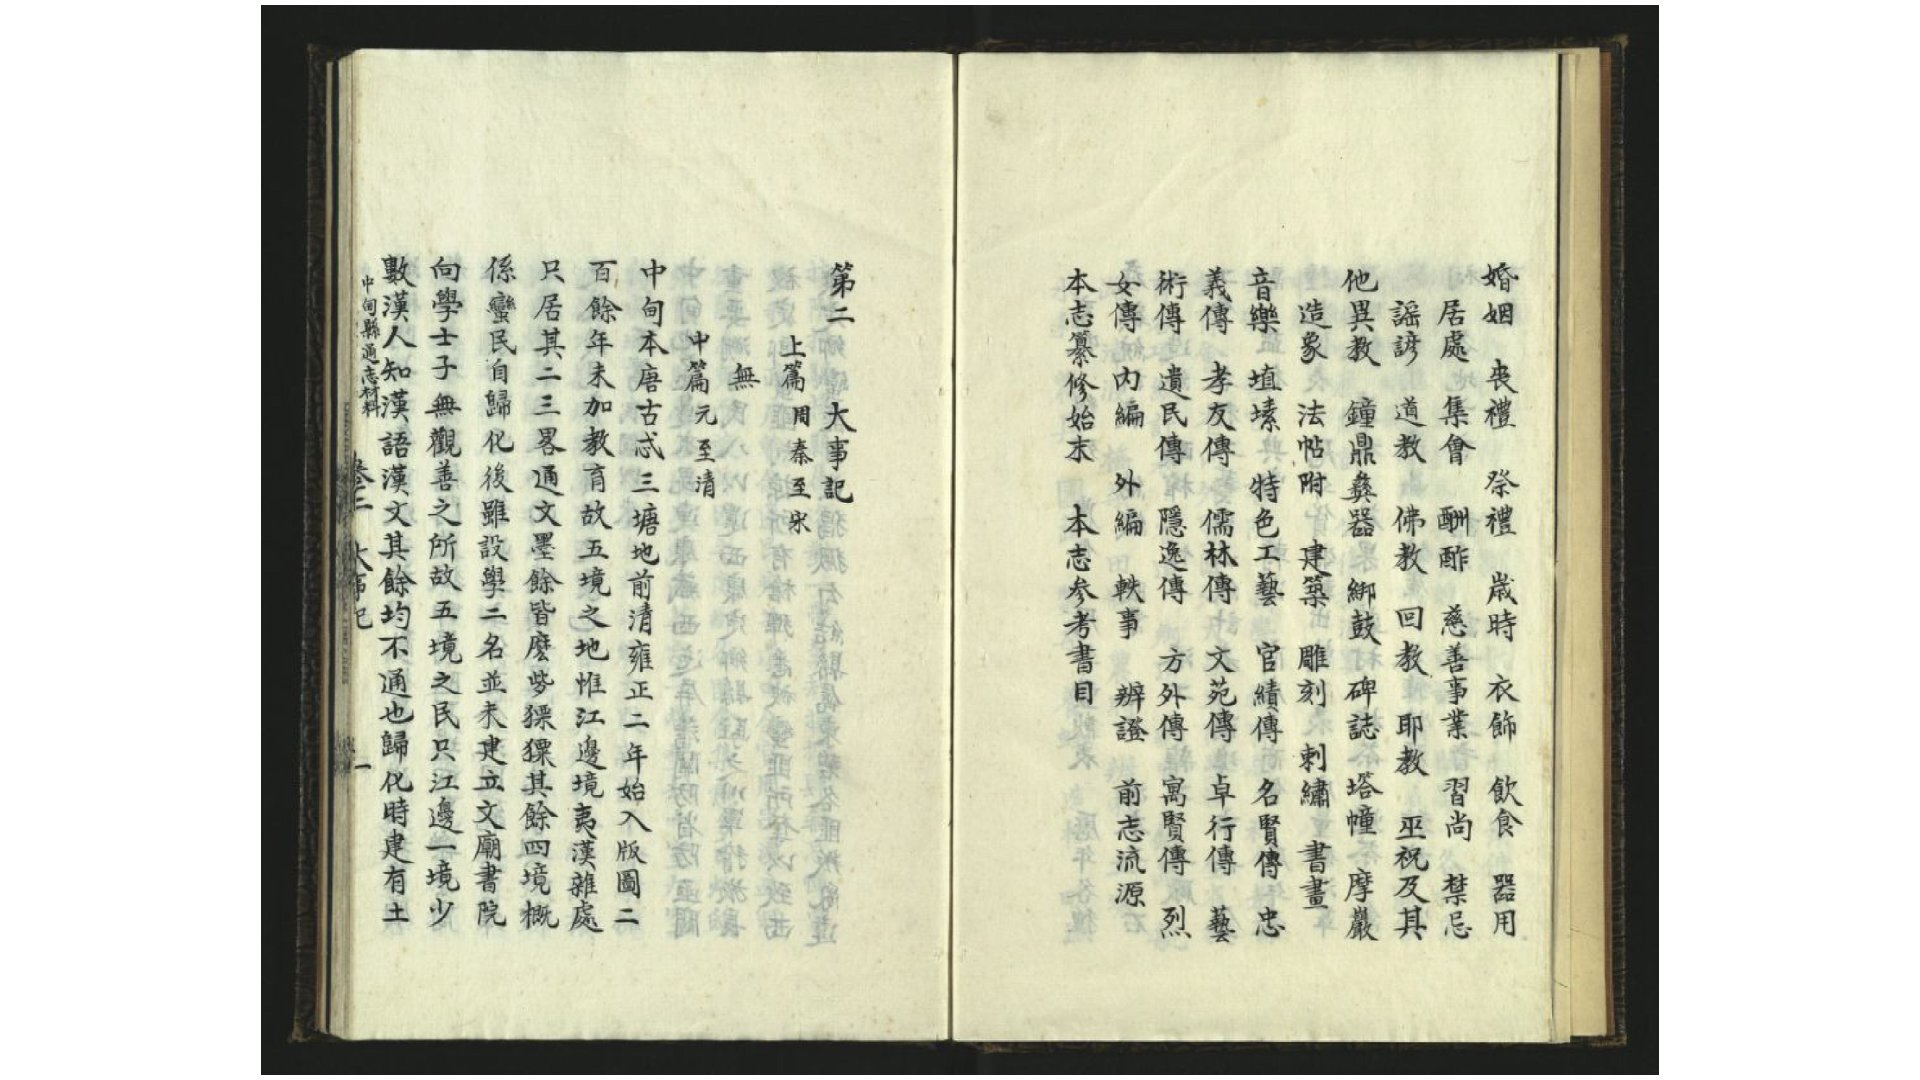 婚姻 喪禮 祭禮 歲時 衣飾 飲食 器用
居處 集會 酬酢 慈善事業 習尚 禁忌
謡諺 道教 佛教 回教 耶教 巫祝及其
他異教 鐘鼎彝器 綁鼓 碑誌 塔幢 摩巖
造象 法帖附 建築 雕刻 刺繡 書畫
音樂 埴塐 特色工藝 官績傳 名賢傳 忠
義傳 孝友傳 儒林傳 文苑傳 卓行傳 藝
術傳 遺民傳 隱逸傳 方外傳 寓賢傳 烈
女傳 內編 外編 軼事 辨證 前志流源
本志纂修始末 本志參考書目
第二 大事記
上篇 周秦至宋
無
中篇 元至清
中甸本唐古忒三塘地前清雍正二年始入版圖二
百餘年未加教育故五境之地惟江邊境夷漢雜處
只居其二三畧通文墨餘皆麽些猓猓其餘四境概
係蠻民自歸化後雖設學二名並未建立文廟書院
向學士子無觀善之所故五境之民只江邊一境少
數漢人知漢語漢文其餘均不通也歸化時建有土
中甸縣通志材料 卷二 大事記 一